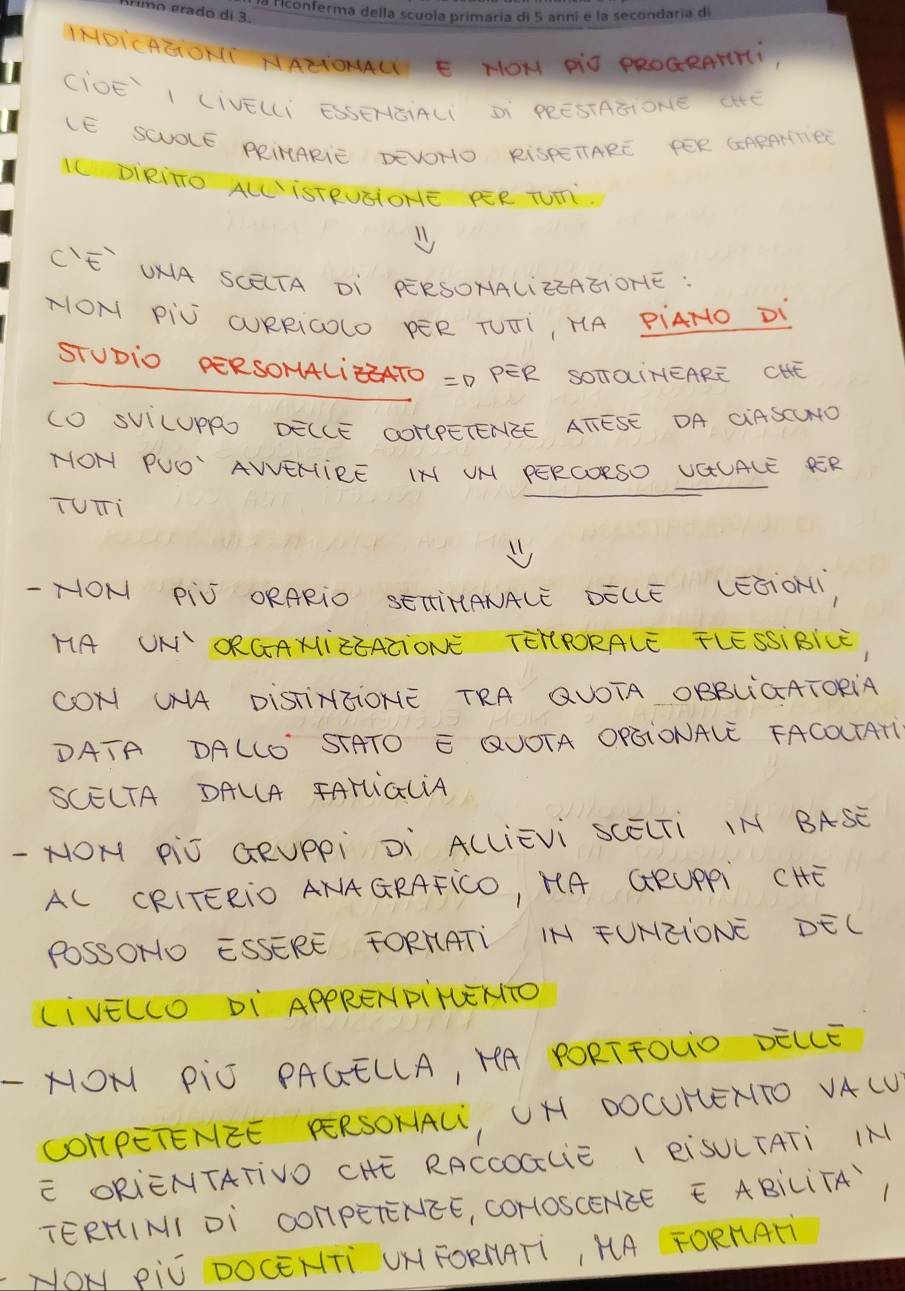 primo grado di 3.
la riconferma della scuola primaria di 5 anni e la secondaria di
INDICAZIONI NAZIONALI E NON PIÙ PROGRAMMI,
CIOE' I LIVELLI ESSENZIALI DI PRESTAZIONE CHE
LE SCUOLE PRIMARIE DEVONO RISPETTARE PER GARANTIRE
IL DIRITTO ALL'ISTRUZIONE PER TUTTI.
⇓
C'E' UNA SCELTA DI PERSONALIZZAZIONE:
NON PIÙ CURRICOLO PER TUTTI, MA PIANO DI
STUDIO PERSONALIZZATO => PER SOTTOLINEARE CHE
LO SVILUPPO DELLE COMPETENZE ATTESE DA CIASCUNO
NON PUO' AVVENIRE IN UN PERCORSO UGUALE PER
TUTTI
⇓
- NON PIÙ ORARIO SETTIMANALE DELLE LEZIONI,
MA UN' ORGANIZZAZIONE TEMPORALE FLESSIBILE,
CON UNA DISTINZIONE TRA QUOTA OBBLIGATORIA
DATA DALLO STATO E QUOTA OPZIONALE FACOLTATI
SCELTA DALLA FAMIGLIA
- NON PIÙ GRUPPI DI ALLIEVI SCELTI IN BASE
AL CRITERIO ANAGRAFICO, MA GRUPPI CHE
POSSONO ESSERE FORMATI IN FUNZIONE DEL
LIVELLO DI APPRENDIMENTO
- NON PIÙ PAGELLA, MA PORTFOLIO DELLE
COMPETENZE PERSONALI, UN DOCUMENTO VALU
E ORIENTATIVO CHE RACCOGLIE I RISULTATI IN
TERMINI DI COMPETENZE, CONOSCENZE E ABILITA',
- NON PIÙ DOCENTI UNFORMATI, MA FORMATI